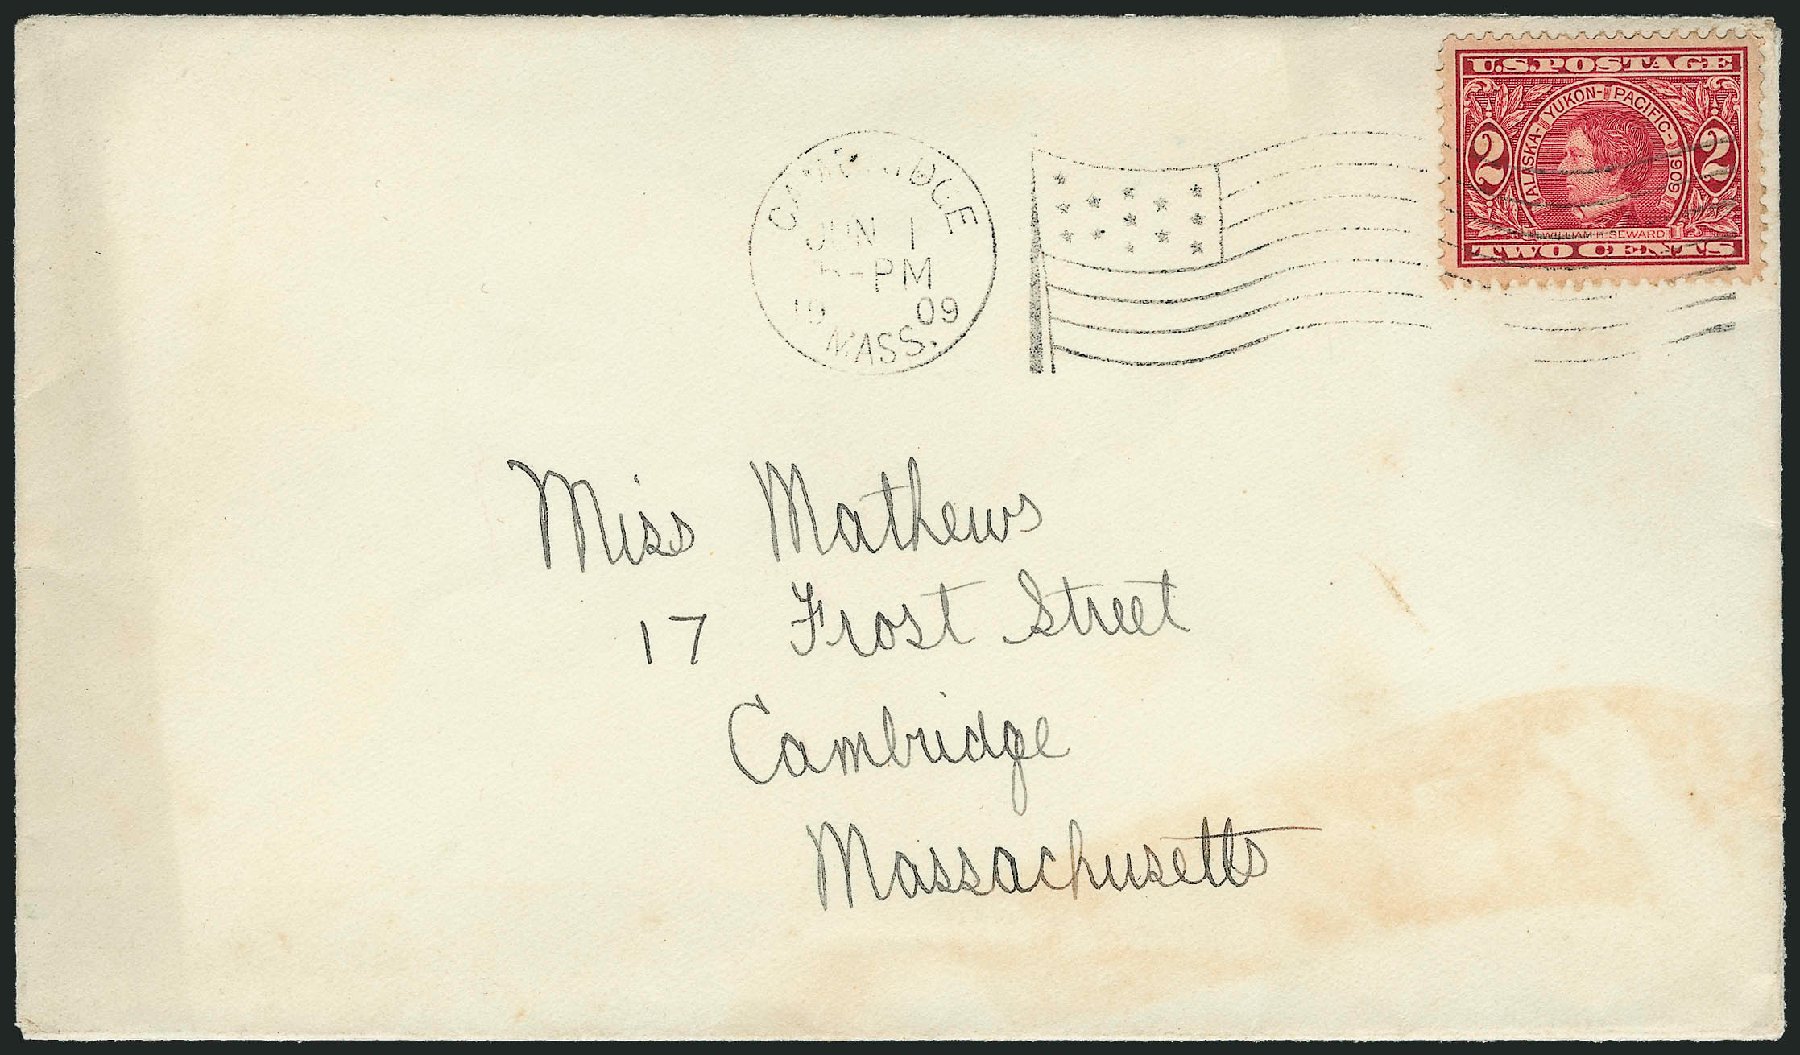 U.S. POSTAGE
ALASKA-YUKON-PACIFIC-1909
2 2
WILLIAM H. SEWARD
TWO CENTS
CAMBRIDGE
JUN 1
-PM
19 09
MASS.
Miss Mathews
17 Frost Street
Cambridge
Massachusetts